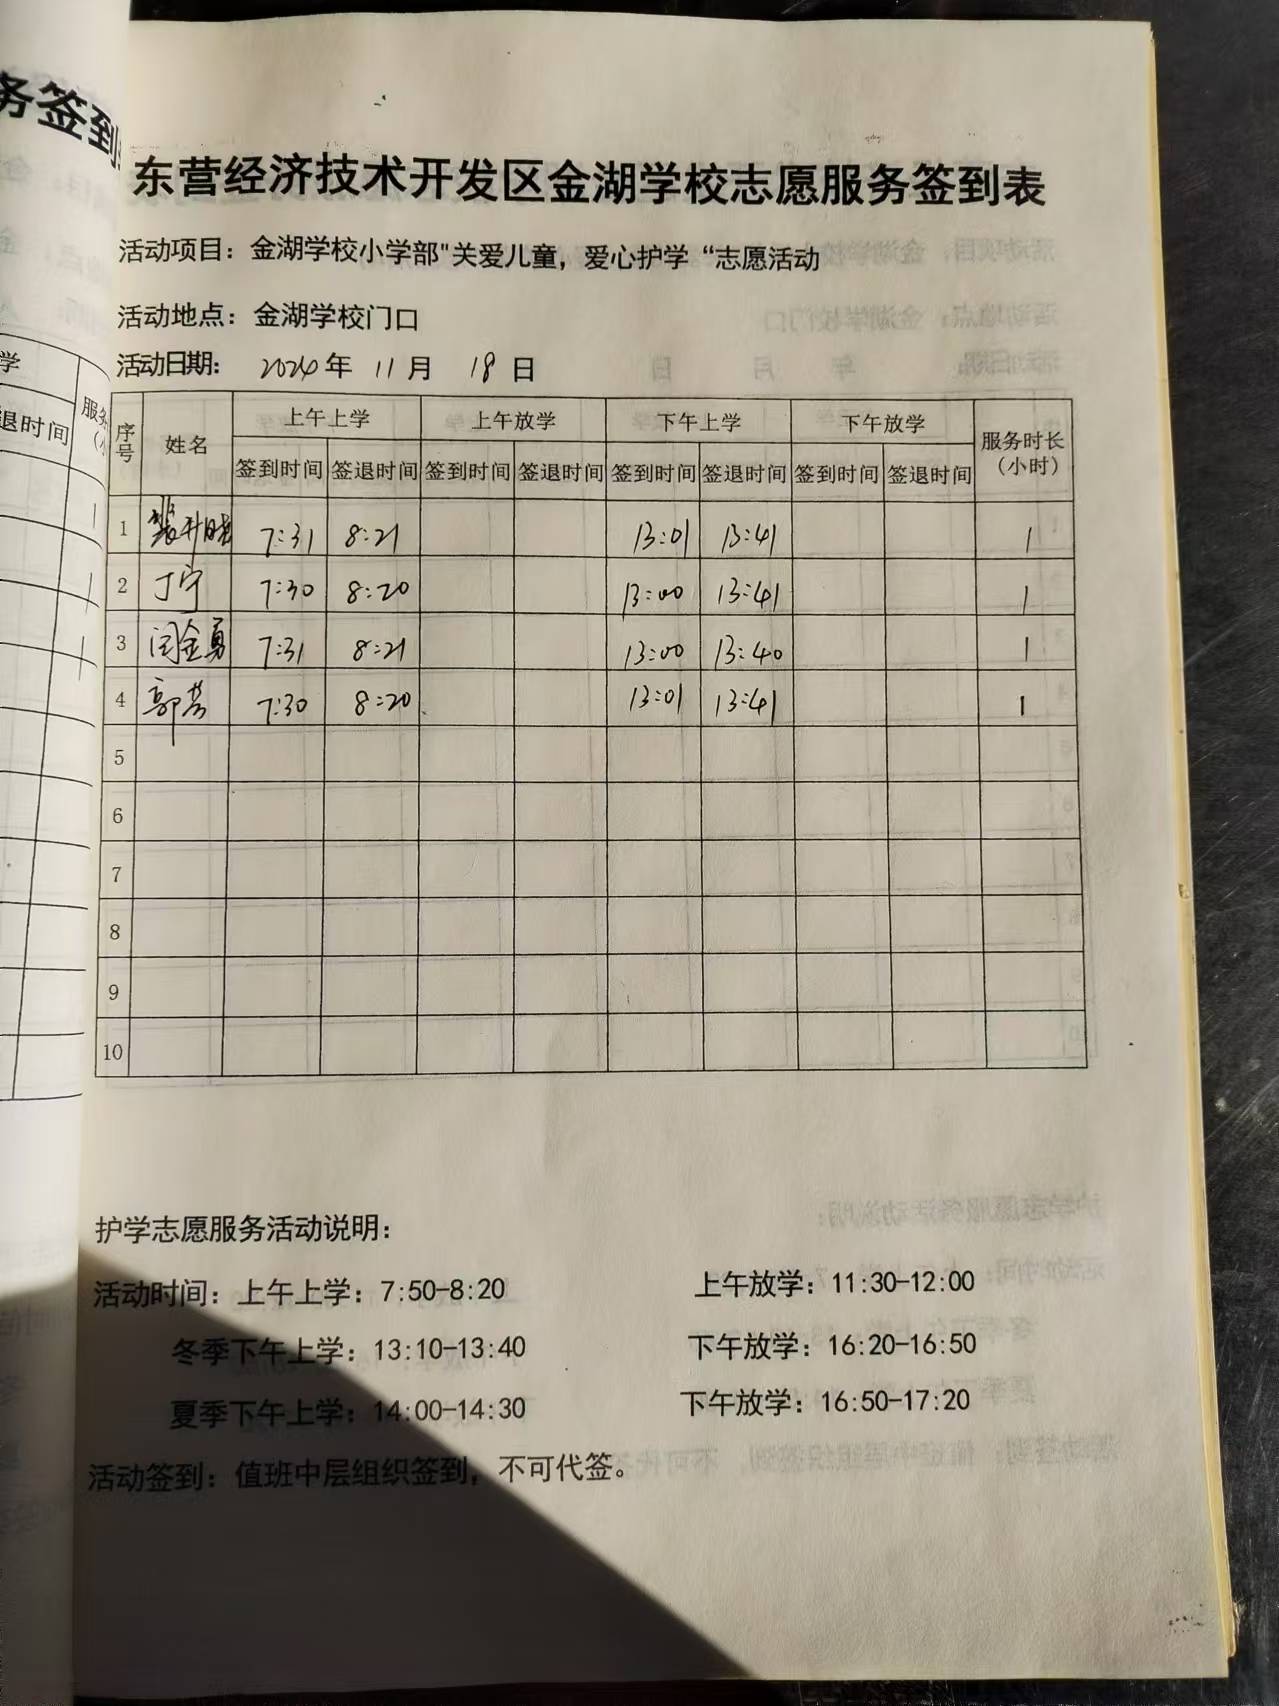 务签到
东营经济技术开发区金湖学校志愿服务签到表
活动项目：金湖学校小学部"关爱儿童，爱心护学 “志愿活动
活动地点：金湖学校门口
活动日期： 2024年 11月 18日
学
退时间
服务
序号 姓名 上午上学 上午放学 下午上学 下午放学 服务时长（小时）
签到时间 签退时间 签到时间 签退时间 签到时间 签退时间 签到时间 签退时间
1 7:31 8:21 13:01 13:41 1
2 丁宁 7:30 8:20 13:00 13:41 1
3 闫金勇 7:31 8:21 13:00 13:40 1
4 郭芳 7:30 8:20 13:01 13:41 1
5
6
7
8
9
10
护学志愿服务活动说明：
活动时间：上午上学：7:50-8:20 上午放学：11:30-12:00
冬季下午上学：13:10-13:40 下午放学：16:20-16:50
夏季下午上学：14:00-14:30 下午放学：16:50-17:20
活动签到：值班中层组织签到，不可代签。